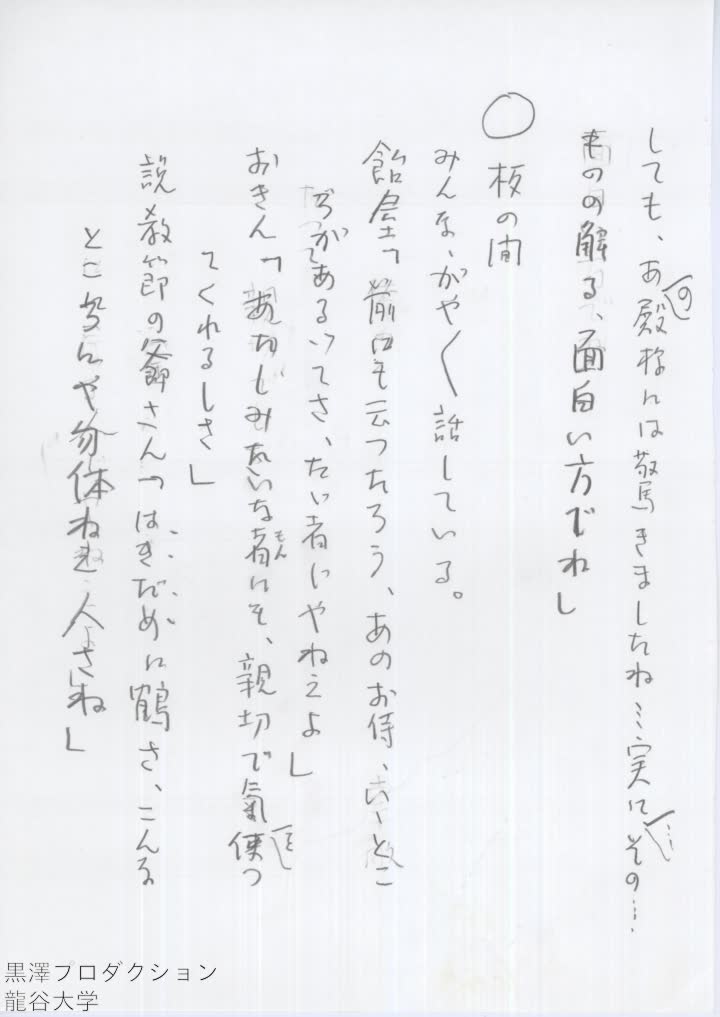 しても、あの殿様には驚きましたね…実に…その…
ものの解る、面白い方でね」
○板の間
みんな、がやく話している。
飴屋「前にも云つたろう、あのお侍、いゝとこ
があるいてさ、たゞ者じやねえよ」
おきん「あたしみたいな者にも、親切で氣を使つ
てくれるしさ」
説教節の爺さん「はきだめに鶴さ、こんな
とこ勢にや勿体ねえ人さね」
黒澤プロダクション
龍谷大学